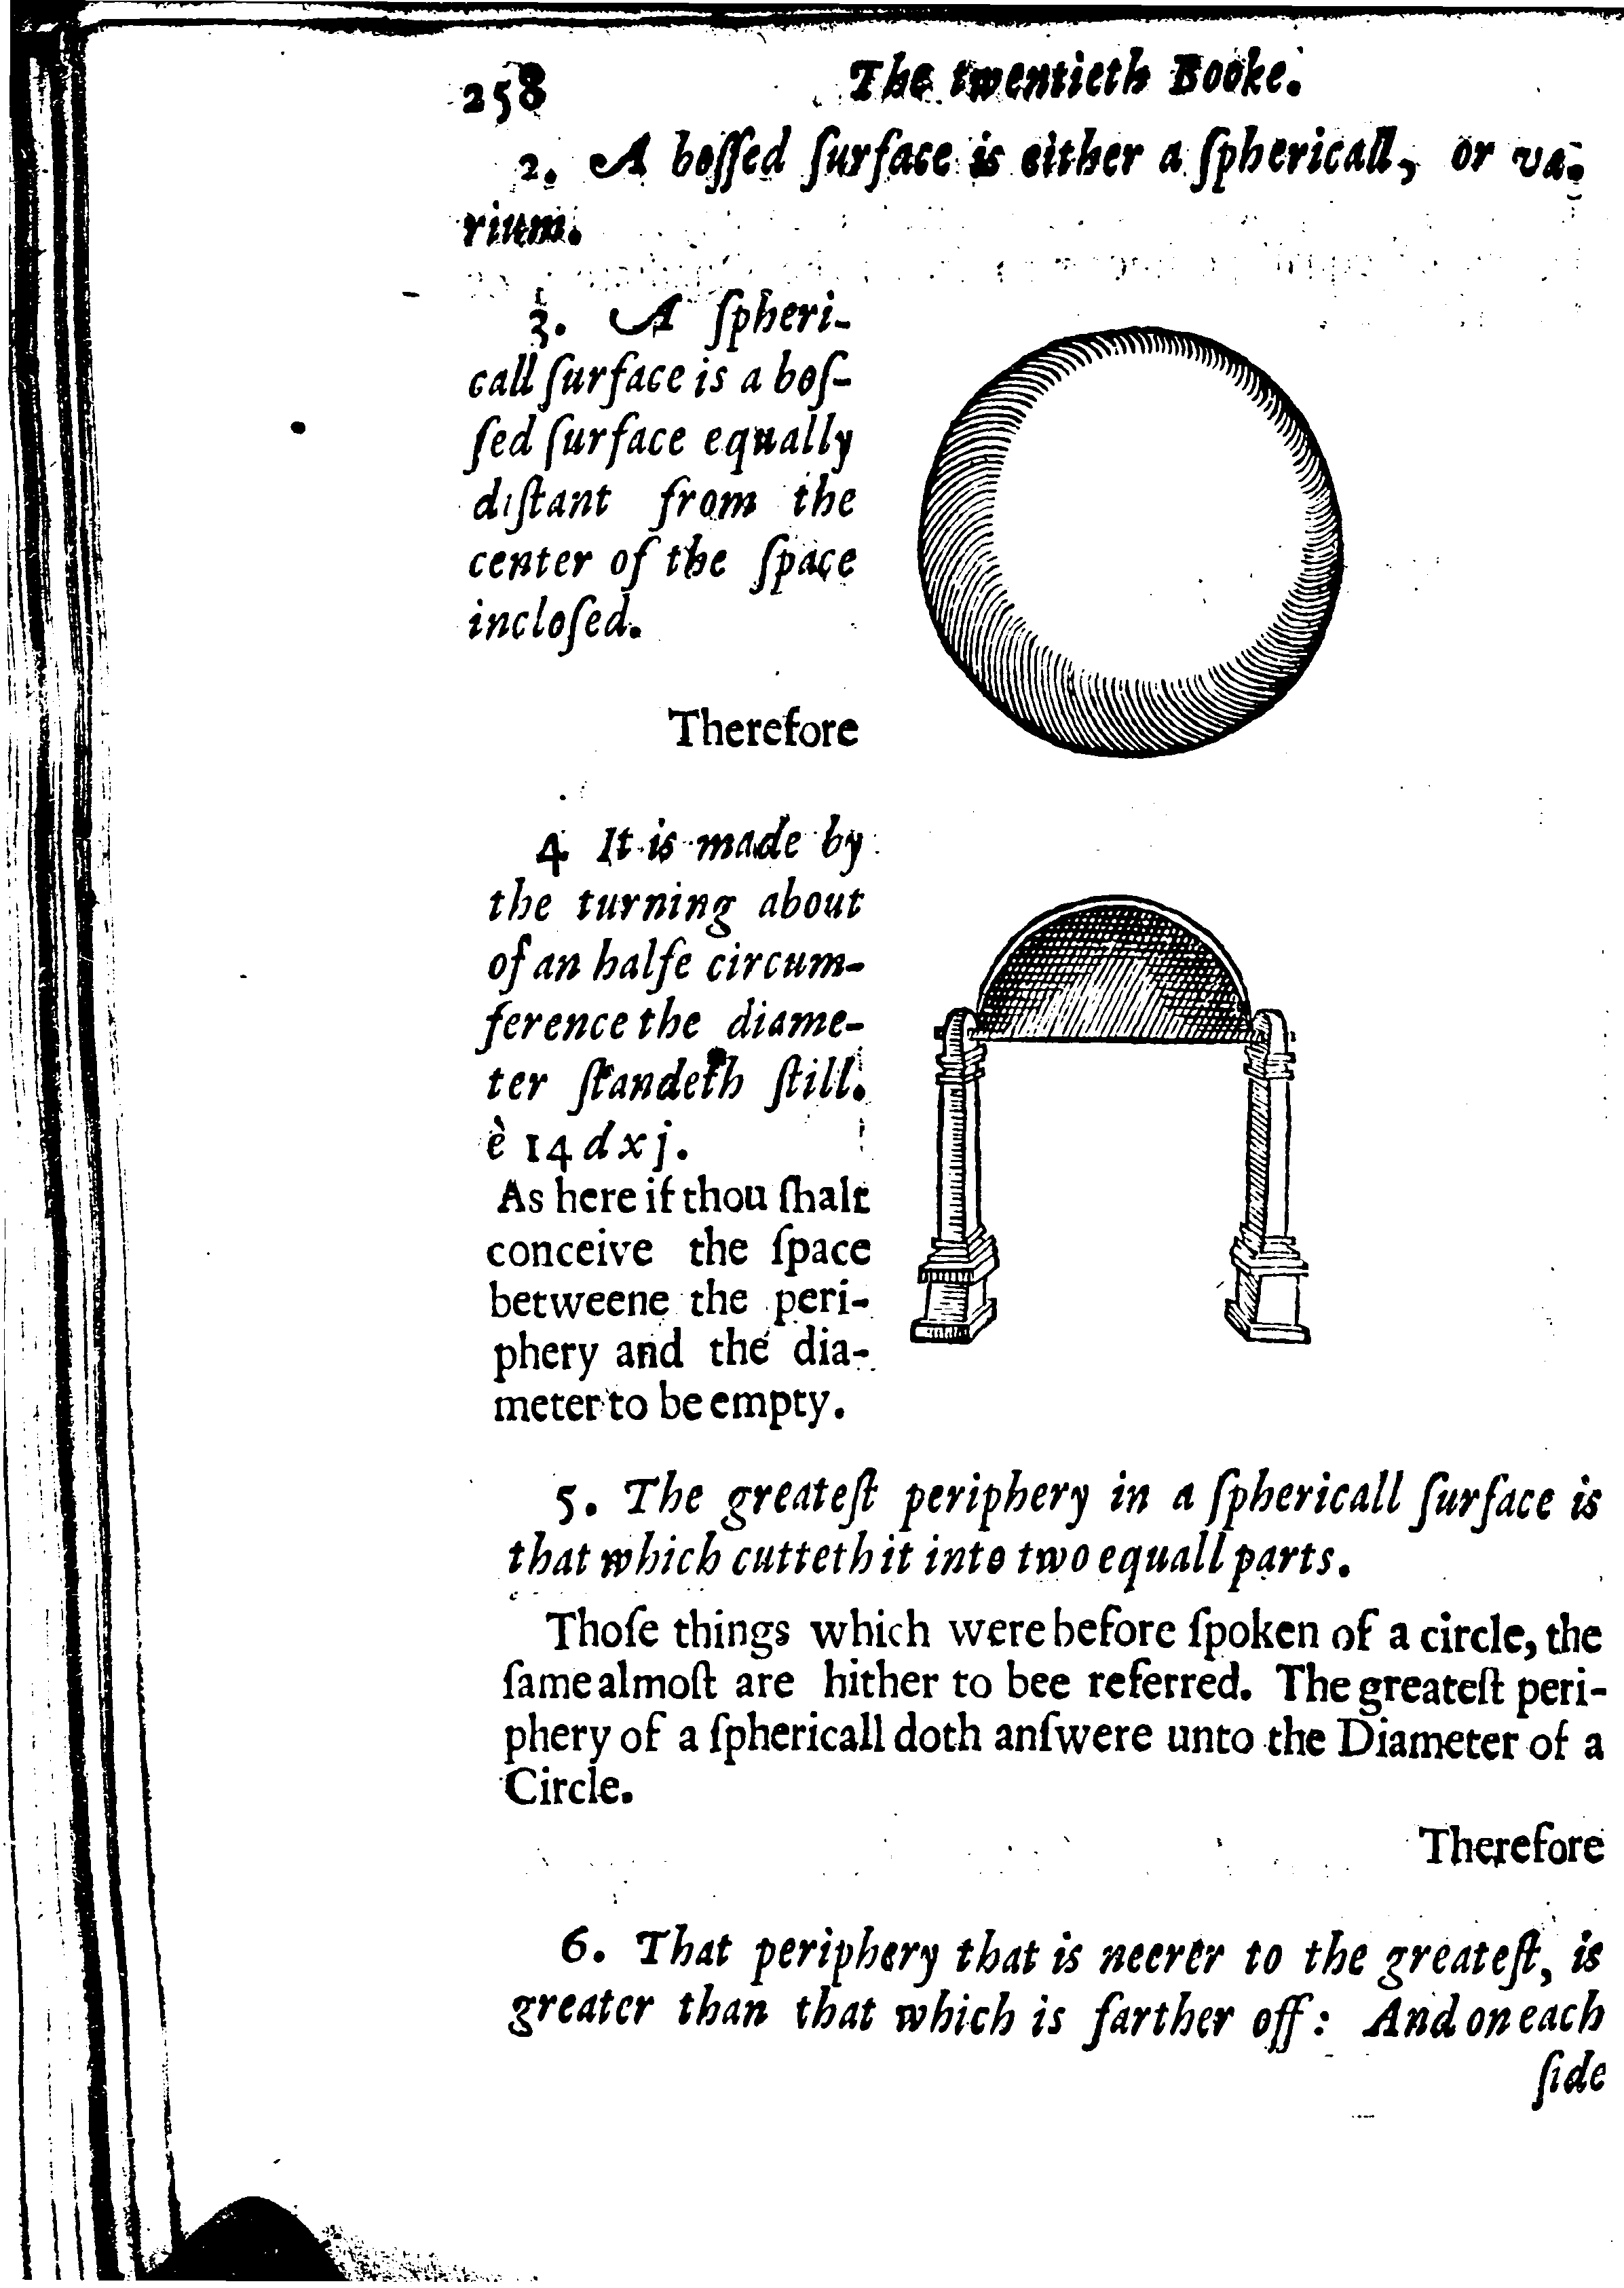 258 The twentieth Booke.
2. A boſſed ſurface is either a ſphericall, or va-
rium.
3. A ſpheri-
call ſurface is a boſ-
ſed ſurface equally
diſtant from the
center of the ſpace
incloſed.
Therefore
4 It is made by
the turning about
of an halfe circum-
ference the diame-
ter ſtandeth ſtill.
è 14 d xj.
As here if thou ſhalt
conceive the ſpace
betweene the peri-
phery and the dia-
meter to be empty.
5. The greateſt periphery in a ſphericall ſurface is
that which cutteth it into two equall parts.
Thoſe things which were before ſpoken of a circle, the
ſame almoſt are hither to bee referred. The greateſt peri-
phery of a ſphericall doth anſwere unto the Diameter of a
Circle.
Therefore
6. That periphery that is neerer to the greateſt, is
greater than that which is farther off: And on each
ſide